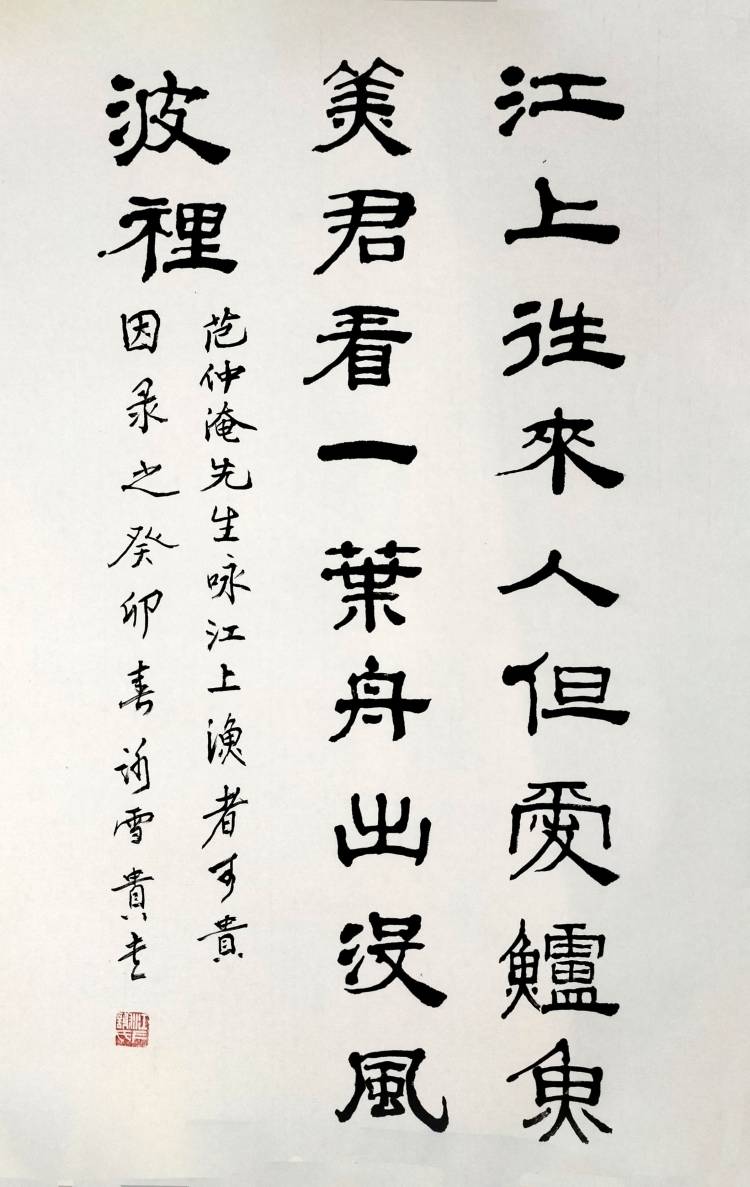 江上往來人但愛鱸魚
美君看一葉舟出沒風
波裡
范仲淹先生咏江上漁者可貴
因录之癸卯春訪雪貴書